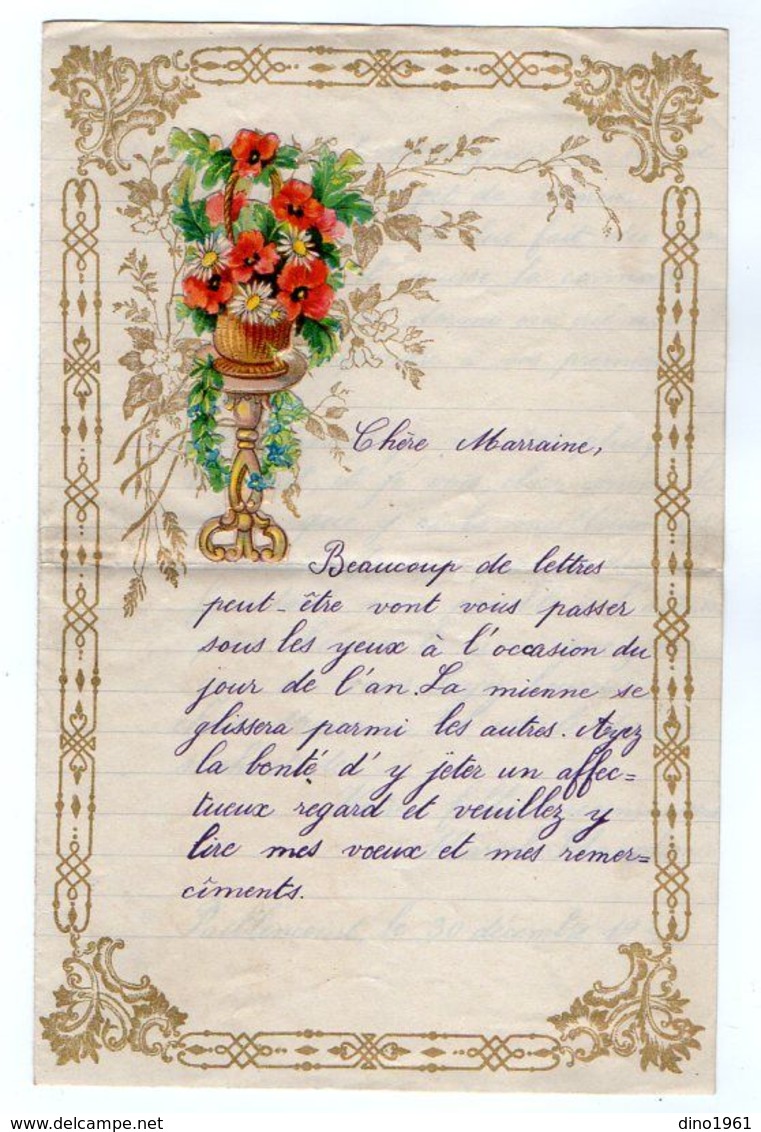 Chère Marraine,
Beaucoup de lettres
peut-être vont vous passer
sous les yeux à l'occasion du
jour de l'an. La mienne se
glissera parmi les autres. Ayez
la bonté d'y jeter un affec=
tueux regard et veuillez y
lire mes vœux et mes remer=
cîments.
le 30 décembre
delcampe.net
dino1961